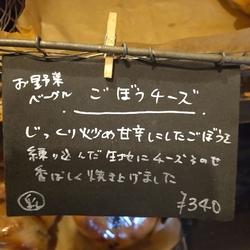 お野菜
ベーグル
ごぼうチーズ
じっくり炒め甘辛にしたごぼうを
練り込んだ生地にチーズをのせ
香ばしく焼き上げました
¥340